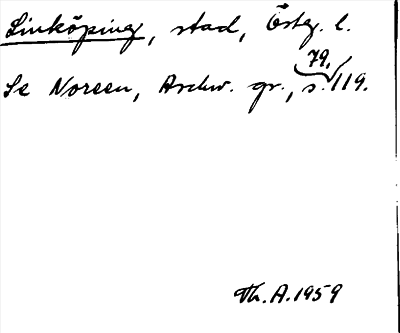 Linköping, stad, Östg. l.
Se Noreen, Archiv. gr., 79, s. 119.
Th. A. 1959